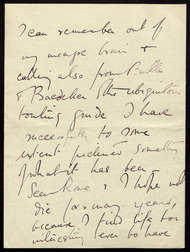 I can remember out of
my meagre brain &
culling also from Butler
& Baedeker (the ubiquitous
touring guide I have
successfully to some
extent pictured something
of what has been
seen. Rome & I hope not
die for many years,
because I find life too
interesting ever to have